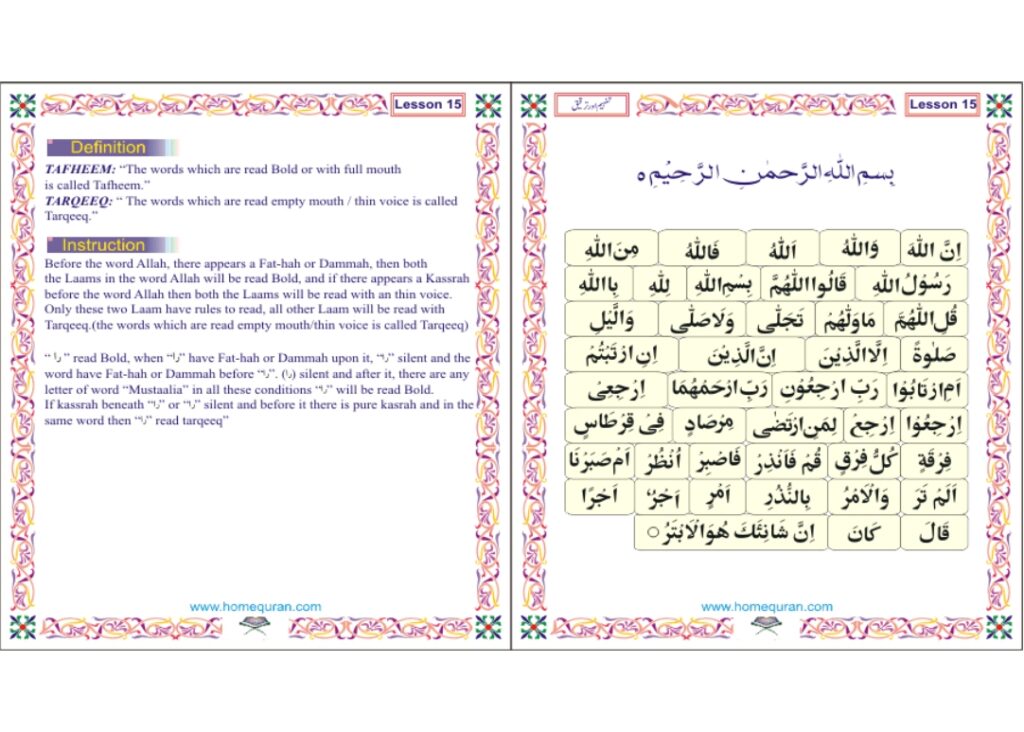 Lesson 15
Definition
TAFHEEM: “The words which are read Bold or with full mouth
is called Tafheem.”
TARQEEQ: “ The words which are read empty mouth / thin voice is called
Tarqeeq.”
Instruction
Before the word Allah, there appears a Fat-hah or Dammah, then both
the Laams in the word Allah will be read Bold, and if there appears a Kassrah
before the word Allah then both the Laams will be read with an thin voice.
Only these two Laam have rules to read, all other Laam will be read with
Tarqeeq.(the words which are read empty mouth/thin voice is called Tarqeeq)
“ را ” read Bold, when “را” have Fat-hah or Dammah upon it, “را” silent and the
word have Fat-hah or Dammah before “را”. (را) silent and after it, there are any
letter of word “Mustaalia” in all these conditions “را” will be read Bold.
If kassrah beneath “را” or “را” silent and before it there is pure kasrah and in the
same word then “را” read tarqeeq”
www.homequran.com
Lesson 15
بِسْمِ اللّٰهِ الرَّحْمٰنِ الرَّحِيْمِ ٥
اِنَّ اللّٰهَ وَاللّٰهُ اَللّٰهُ فَاللّٰهُ مِنَ اللّٰهِ
رَسُوْلُ اللّٰهِ قَالُوا اللّٰهُمَّ بِسْمِ اللّٰهِ لِلّٰهِ بِاللّٰهِ
قُلِ اللّٰهُمَّ مَاوَلّٰهُمْ تَجَلّٰى وَلَاصَلّٰى وَالَّيْلِ
صَلٰوةً اِلَّا الَّذِيْنَ اِنَّ الَّذِيْنَ اِنِ ارْتَبْتُمْ
اَمِ ارْتَابُوْا رَبِّ ارْجِعُوْنِ رَبِّ ارْحَمْهُمَا اِرْجِعِىْ
اِرْجِعُوْا اِرْجِعْ لِمَنِ ارْتَضٰى مِرْصَادٍ فِىْ قِرْطَاسٍ
فِرْقَةٍ كُلُّ فِرْقٍ قُمْ فَاَنْذِرْ فَاصْبِرْ اُنْظُرْ اَمْ صَبَرْنَا
اَلَمْ تَرَ وَالْاَمْرُ بِالنُّذُرِ اَمْرٍ اَجْرٌ اَجْرًا
قَالَ كَانَ اِنَّ شَانِئَكَ هُوَ الْاَبْتَرُ ○
www.homequran.com